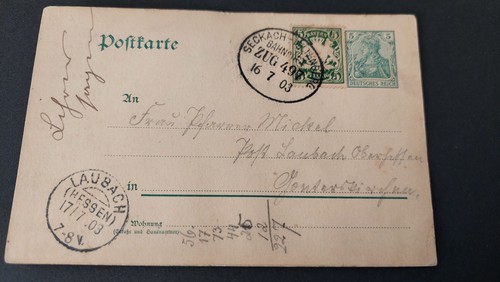 Postkarte
SECKACH-
BAHNPOST
ZUG 497
16 7 03
5 5
DEUTSCHES REICH
An
Frau Pfarrer Mickel
Post Laubach Oberhessen
in Gonterskirchen
LAUBACH
(HESSEN)
17.7.03
7-8V.
Wohnung
(Straße und Hausnummer)
56
17
73
44
26
12
227